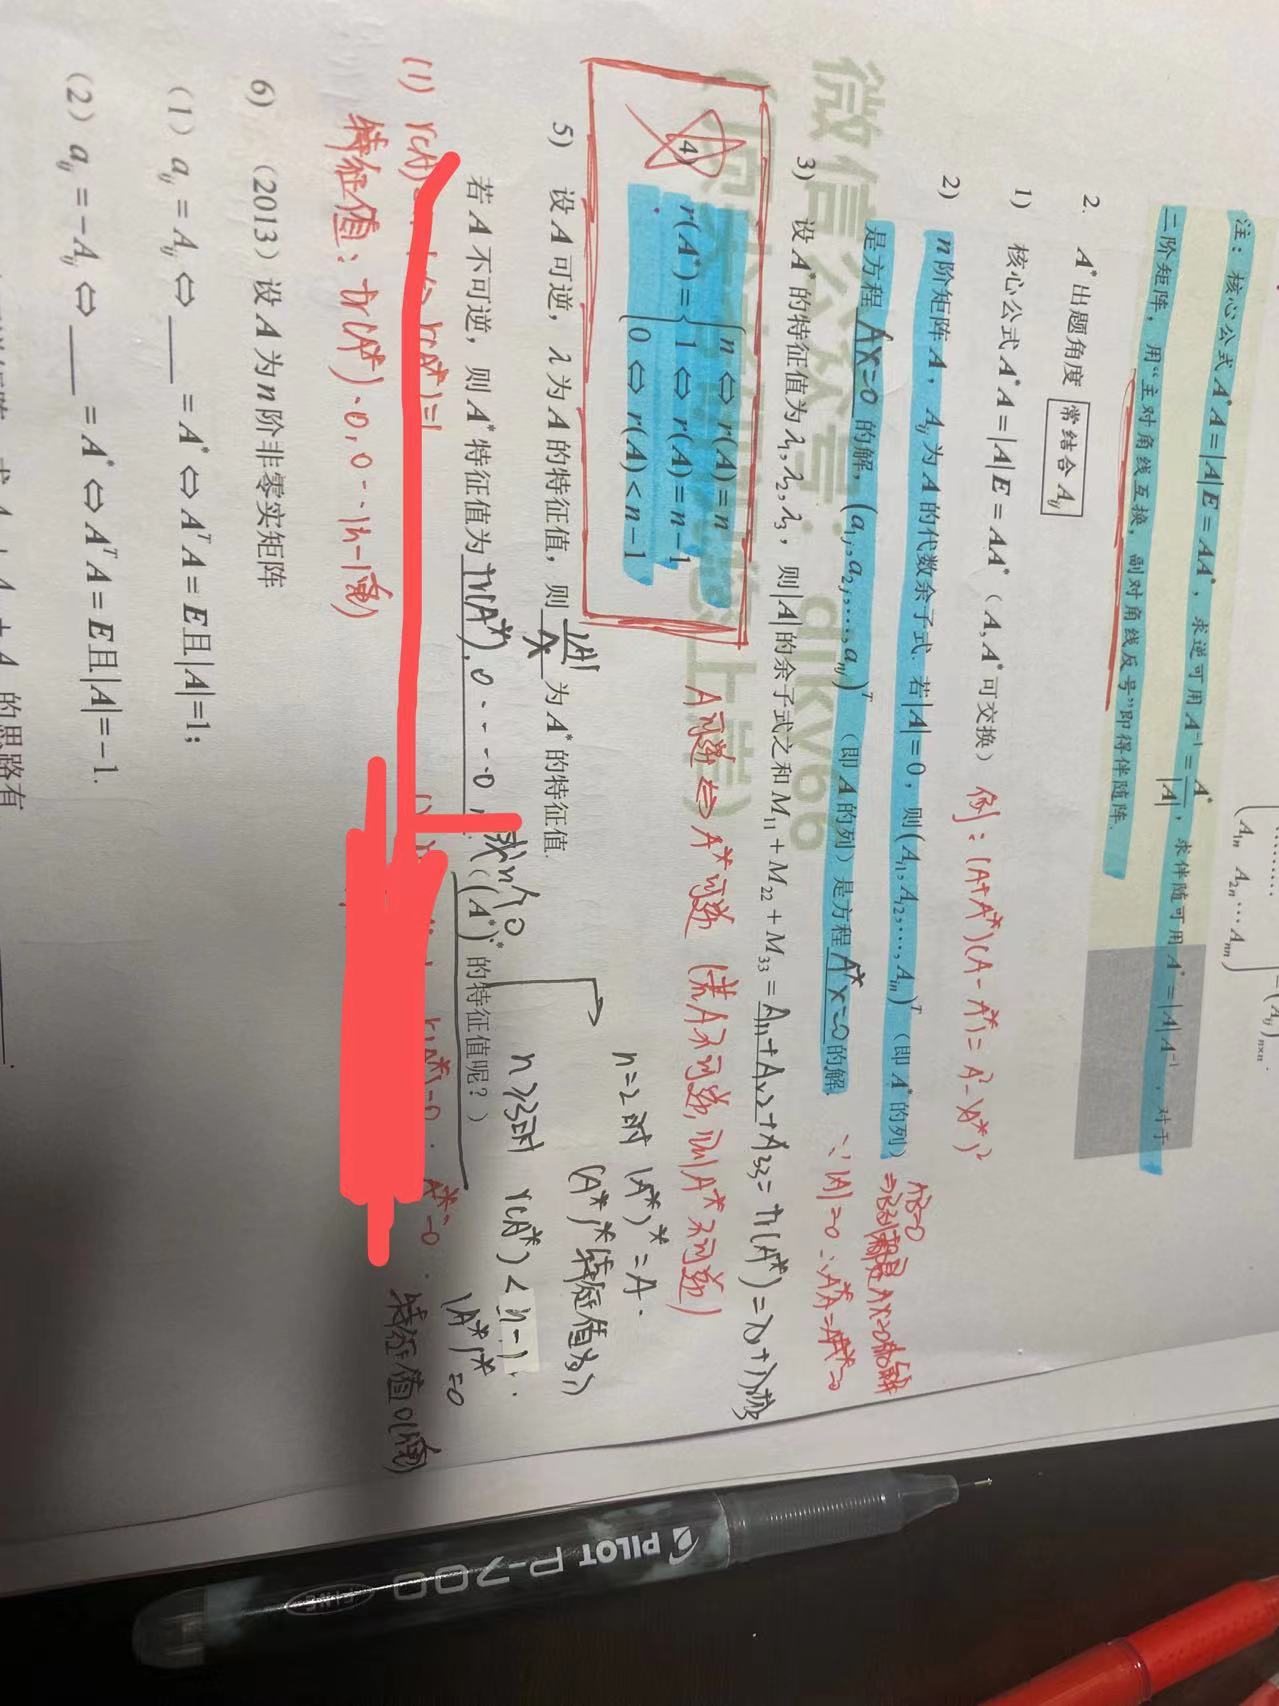 A₁ₙ A₂ₙ ⋯ Aₙₙ
注：核心公式 A*A=|A|E=AA*，求逆可用 A⁻¹=A*/|A|，求伴随可用 A*=|A|A⁻¹，对于
二阶矩阵，用“主对角线互换，副对角线反号”即得伴随阵.
2. A*出题角度 常结合Aᵢⱼ
1) 核心公式 A*A=|A|E=AA*（A,A*可交换） 例：(A+A*)(A-A*)=A²-(A*)²
2) n阶矩阵A，Aᵢⱼ为A的代数余子式. 若|A|=0，则(Aᵢ₁,Aᵢ₂,…,Aᵢₙ)ᵀ（即A*的列）
是方程 AX=0 的解，(a₁ⱼ,a₂ⱼ,…,aₙⱼ)ᵀ（即A的列）是方程 A*x=0 的解.
∵|A|=0
3) 设A*的特征值为λ₁,λ₂,λ₃，则|A|的余子式之和M₁₁+M₂₂+M₃₃=A₁₁+A₂₂+A₃₃=tr(A*)=λ₁+λ₂+λ₃
A可逆⇔A*可逆 (若A不可逆，则A*不可逆)
4) r(A*)={n⇔r(A)=n
1⇔r(A)=n-1
0⇔r(A)<n-1
5) 设A可逆，λ为A的特征值，则 |A|/λ 为A*的特征值.
n=2时 (A*)*=A.
(A*)*特征值为λ
若A不可逆，则A*特征值为 tr(A*),0…0，或n个0.（(A*)*的特征值呢？）
n≥3时 r(A*)<n-1.
(A*)*=0
(1) r(A)
r(A*)=1
r(A*)=0. A*=0.
特征值：tr(A*).0,0…(n-1重)
特征值0(n重)
6) （2013）设A为n阶非零实矩阵
（1）aᵢⱼ=Aᵢⱼ⇔____=A*⇔AᵀA=E且|A|=1；
（2）aᵢⱼ=-Aᵢⱼ⇔____=A*⇔AᵀA=E且|A|=-1.
的思路有
PILOT P-700
FINE